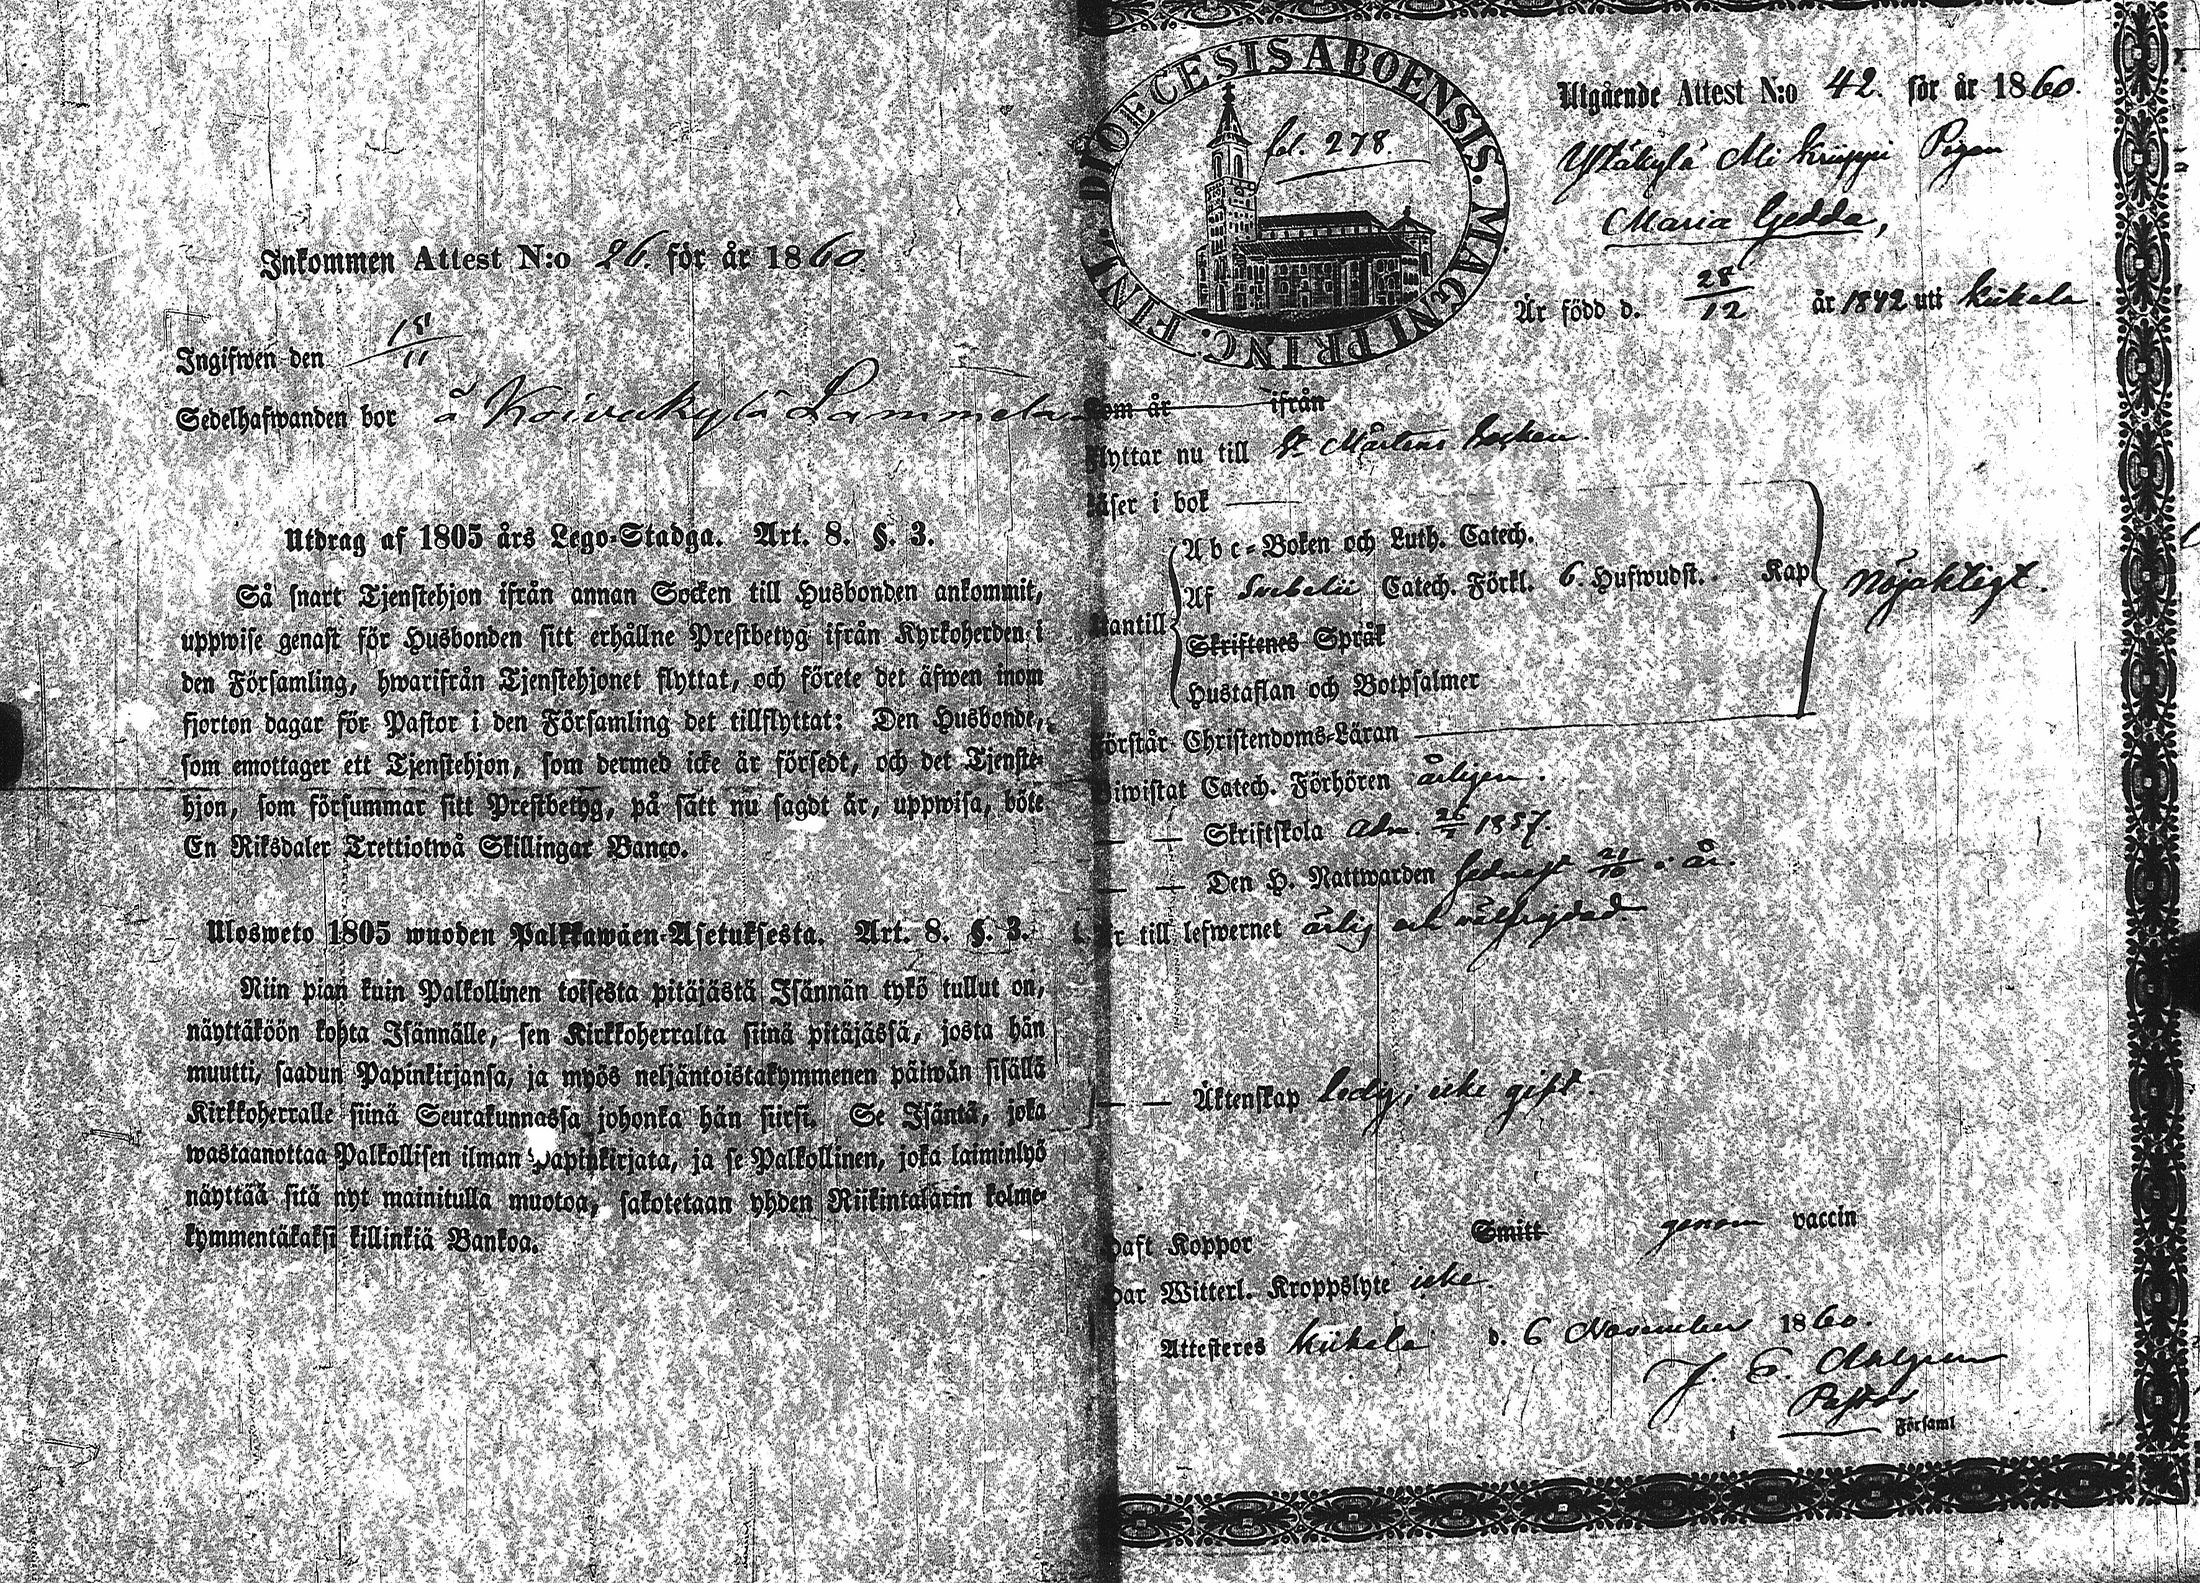 Inkommen Attest N:o 26. för år 1860.
Ingifwen den 18/11
Sedelhafwanden bor å Koivukylä Lammela
Utdrag af 1805 års Lego-Stadga. Art. 8. §. 3.
Så snart Tjenstehjon ifrån annan Socken till Husbonden ankommit,
uppwise genast för Husbonden sitt erhållne Prestbetyg ifrån Kyrkoherden i
den Församling, hwarifrån Tjenstehjonet flyttat, och förete det äfwen inom
fjorton dagar för Pastor i den Församling det tillflyttat: Den Husbonde,
som emottager ett Tjenstehjon, som dermed icke är försedt, och det Tjenste-
hjon, som försummar sitt Prestbetyg, på sätt nu sagdt är, uppwisa, böte
En Riksdaler Trettiotwå Skillingar Banco.
Ulosweto 1805 wuoden Palkkawäen-Asetuksesta. Art. 8. §. 3.
Niin pian kuin Palkollinen toisesta pitäjästä Isännän tykö tullut on,
näyttäköön kohta Isännälle, sen Kirkkoherralta siinä pitäjässä, josta hän
muutti, saadun Papinkirjansa, ja myös neljäntoistakymmenen päiwän sisällä
Kirkkoherralle siinä Seurakunnassa johonka hän siirsi. Se Isäntä, joka
wastaanottaa Palkollisen ilman Papinkirjata, ja se Palkollinen, joka laiminlyö
näyttää sitä nyt mainitulla muotoa, sakotetaan yhden Riikintalarin kolme-
kymmentäkaksi killinkiä Bankoa.
DIOECESIS ABOENSIS. MAGNI PRINC. FINL.
fol. 278.
Utgående Attest N:o 42. för år 1860.
Ylikylä Ali Krüppi Pigan
Maria Gedda,
Är född d. 28/12 år 1842 uti Kiikala
Som år ifrån
Flyttar nu till St Mårtens Socken.
Läser i bok
Utantill
Abc-Boken och Luth. Catech.
Af Svebelii Catech. Förkl. 6. Hufwudst. Kap
Skriftenes Språk
Hustaflan och Botpsalmer
Nöjaktigt.
Förstår Christendoms-Läran
Biwistat Catech. Förhören årligen.
— — Skriftskola adm. 26/7 1857.
— — Den H. Nattwarden sednast 21/10 i år.
Är till lefwernet ärlig och välfrejdad
— — Äktenskap ledig, icke gift.
Haft Koppor Smitt genom vaccin
Har Witterl. Kroppslyte icke
Attesteres Kiikala d. 6 November 1860.
J. E. Ahlgren
Pastor
i Församl